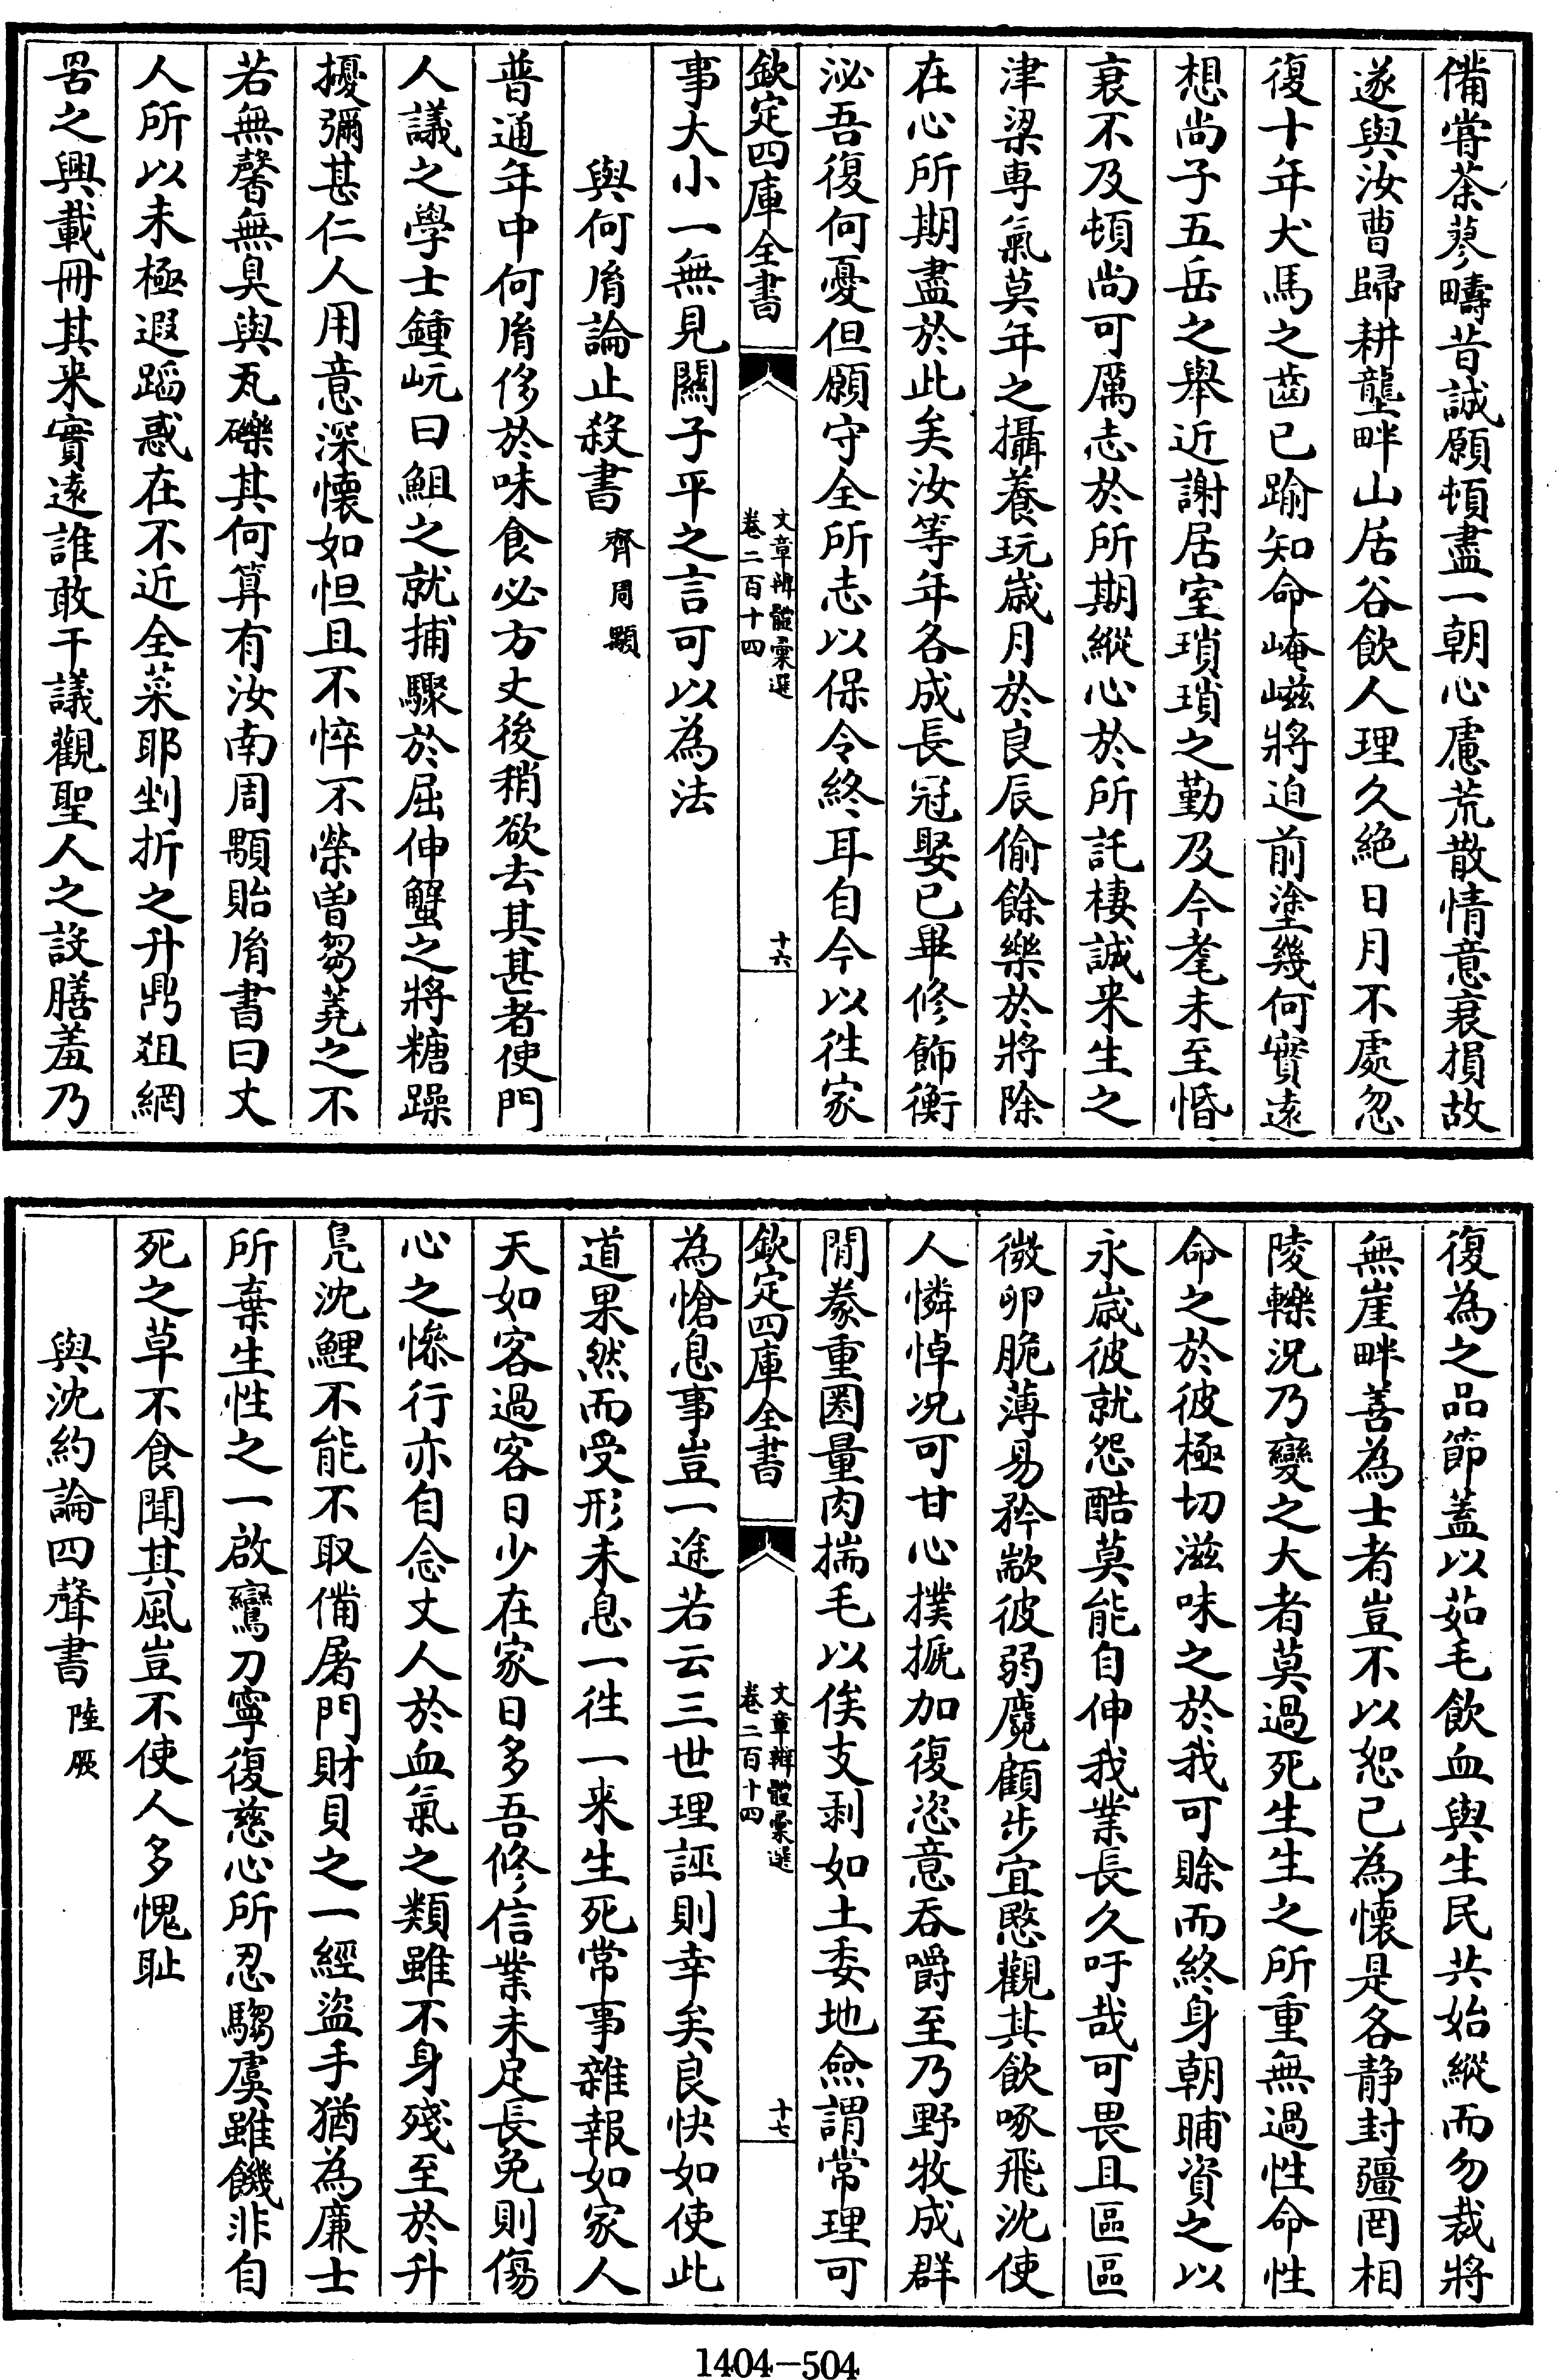 備嘗荼蓼疇昔誠願頓盡一朝心慮荒散情意衰損故
遂與汝曹歸耕壟畔山居谷飲人理久絶日月不處忽
復十年犬馬之齒已踰知命崦嵫將迫前塗幾何實遠
想尚子五岳之舉近謝居室瑣瑣之勤及今耄未至惛
衰不及頓尚可厲志於所期縱心於所託棲誠來生之
津梁専氣莫年之攝養玩歳月於良辰偷餘樂於將除
在心所期盡於此矣汝等年各成長冠娶已畢修飾衡
泌吾復何憂但願守全所志以保令終耳自今以徃家
欽定四庫全書
文章辨體彚選
卷二百十四
十六
事大小一無見關子平之言可以為法
與何㣧論止殺書 齊周顒
普通年中何㣧侈於味食必方丈後稍欲去其甚者使門
人議之學士鍾岏曰䱉之就捕驟於屈伸蟹之將糖躁
擾彌甚仁人用意深懷如怛且不悴不榮曽芻蕘之不
若無馨無臭與瓦礫其何算有汝南周顒貽㣧書曰丈
人所以未極遐蹈惑在不近全菜耶剉折之升鼎俎網
罟之興載冊其来實逺誰敢干議觀聖人之設膳羞乃
復為之品節蓋以茹毛飲血與生民共始縱而勿裁將
無崖畔善為士者豈不以恕己為懷是各静封疆罔相
陵轢況乃變之大者莫過死生生之所重無過性命性
命之於彼極切滋味之於我可賒而終身朝晡資之以
永歳彼就怨酷莫能自伸我業長久吁哉可畏且區區
微卵脆薄易矜歂彼弱麑顧步宜愍觀其飲啄飛沈使
人憐悼况可甘心撲搋加復恣意吞嚼至乃野牧成群
閒豢重圈量肉揣毛以俟支剥如土委地僉謂常理可
欽定四庫全書
文章辨體彚選
卷二百十四
十七
為愴息事豈一途若云三世理誣則幸矣良快如使此
道果然而受形未息一徃一来生死常事雜報如家人
天如客過客日少在家日多吾修信業未足長免則傷
心之慘行亦自念丈人於血氣之類雖不身殘至於升
鳬沈鯉不能不取備屠門財貝之一經盜手猶為廉士
所棄生性之一啟鸞刀寧復慈心所忍騶虞雖饑非自
死之草不食聞其風豈不使人多愧耻
與沈約論四聲書 陸厥
1404-504